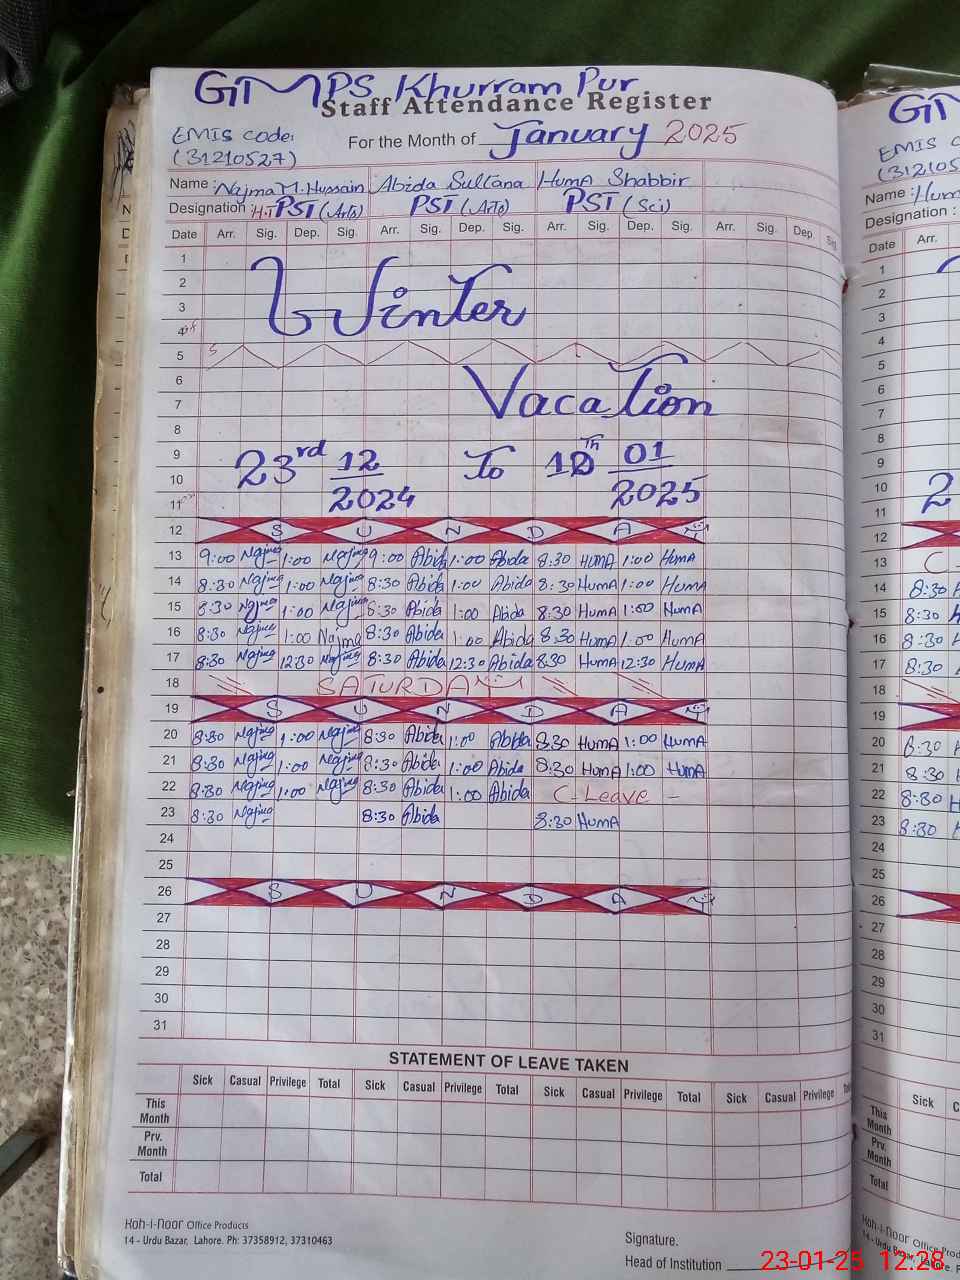 GMPS Khurram Pur
Staff Attendance Register
EMIS code: For the Month of January 2025
(31210527)
Name : Najma M. Hussain Abida Sultana HumA Shabbir
Designation : H.T PST (Arts) PST (Arts) PST (Sci)
Date Arr. Sig. Dep. Sig. Arr. Sig. Dep. Sig. Arr. Sig. Dep. Sig. Arr. Sig. Dep. Sig.
1
2 Winter
3
4
5
6
7 Vacation
8
9
10 23rd 12/2024 To 10Th 01/2025
11
12 S U N D A Y
13 9:00 Najma 1:00 Najma 9:00 Abida 1:00 Abida 8:30 HumA 1:00 HumA
14 8:30 Najma 1:00 Najma 8:30 Abida 1:00 Abida 8:30 HumA 1:00 HumA
15 8:30 Najma 1:00 Najma 8:30 Abida 1:00 Abida 8:30 HumA 1:00 HumA
16 8:30 Najma 1:00 Najma 8:30 Abida 1:00 Abida 8:30 HumA 1:00 HumA
17 8:30 Najma 12:30 Najma 8:30 Abida 12:30 Abida 8:30 HumA 12:30 HumA
18 SATURDAY
19 S U N D A Y
20 8:30 Najma 1:00 Najma 8:30 Abida 1:00 Abida 8:30 HumA 1:00 HumA
21 8:30 Najma 1:00 Najma 8:30 Abida 1:00 Abida 8:30 HumA 1:00 HumA
22 8:30 Najma 1:00 Najma 8:30 Abida 1:00 Abida C-Leave -
23 8:30 Najma 8:30 Abida 8:30 HumA
24
25
26 S U N D A Y
27
28
29
30
31
STATEMENT OF LEAVE TAKEN
Sick Casual Privilege Total Sick Casual Privilege Total Sick Casual Privilege Total Sick Casual Privilege
This Month
Prv. Month
Total
Koh-i-Noor Office Products
14 - Urdu Bazar, Lahore. Ph: 37358912, 37310463
Signature.
Head of Institution
GM
EMIS
(312105
Name :
Designation :
Date Arr.
1
2
3
4
5
6
7
8
9
10 2
11
12
13 C -
14 8:30
15 8:30
16 8:30
17 8:30
18
19
20 8:30
21 8:30
22 8:30
23 8:30
24
25
26
27
28
29
30
31
Sick
This Month
Prv. Month
Total
Koh-i-Noor Office
14 - Urdu Bazar, Lahore.
23-01-25 12:28